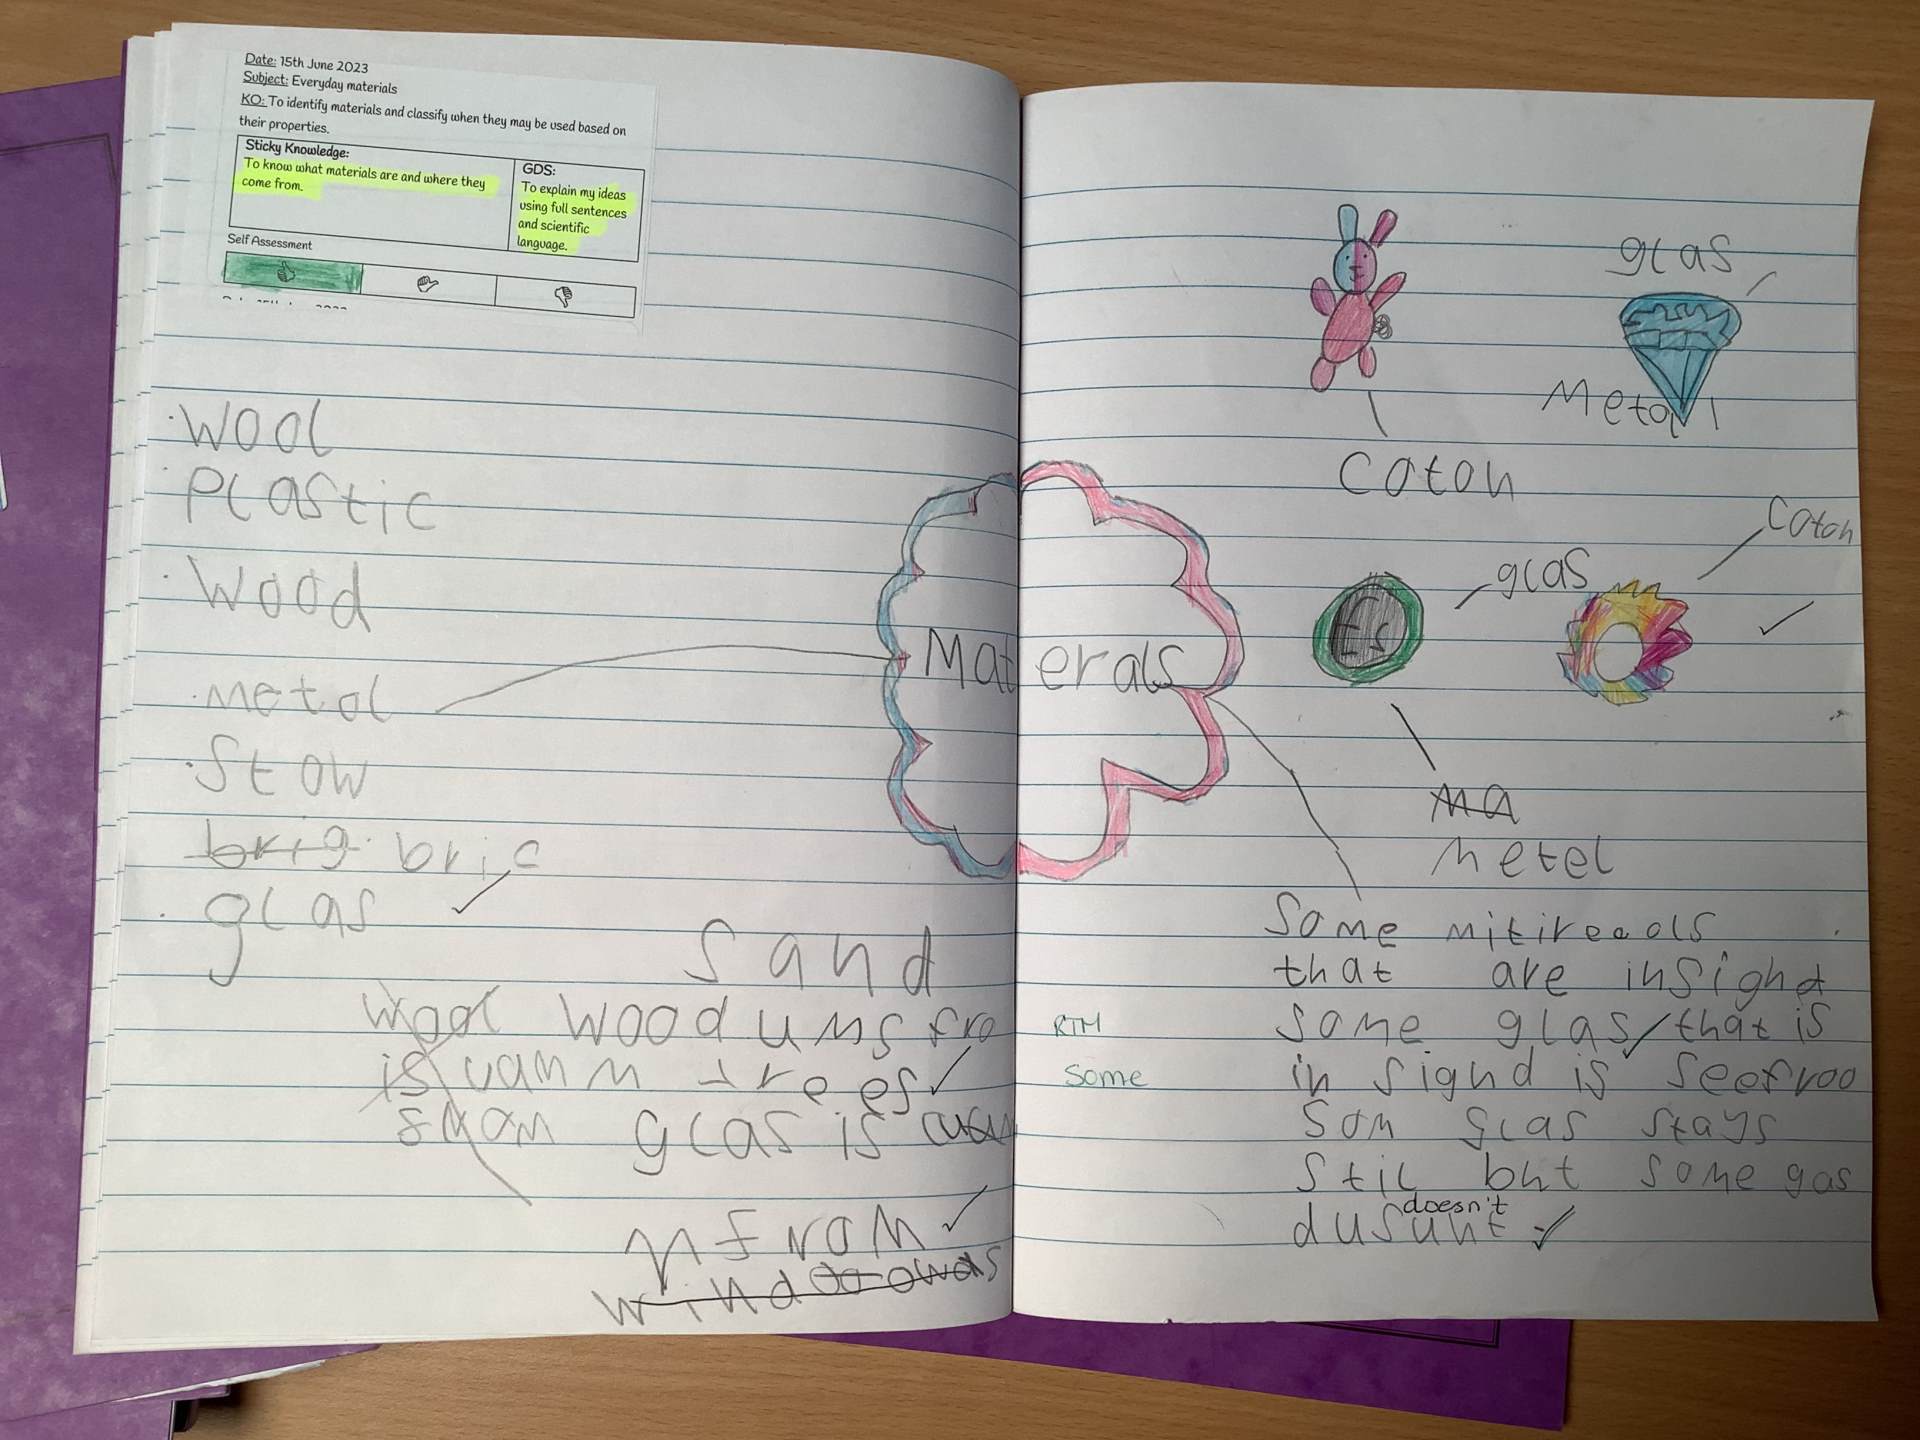 Date: 15th June 2023
Subject: Everyday materials
KO: To identify materials and classify when they may be used based on
their properties.
Sticky Knowledge:
To know what materials are and where they
come from.
GDS:
To explain my ideas
using full sentences
and scientific
language.
Self Assessment
· wool
· plastic
· wood
· metal
· Stow
brig bric
· glas
Sand
wool wood ums fro
is vamm trees
glas is
mfrom
Materals
glas
Metal
Coton
Coton
glas
Es
ma
Metel
Some mitireeals
that are insighd
RTM
some glas that is
some
in sighd is seefroo
Som glas stays
Stil but some gas
doesn't
dusunt